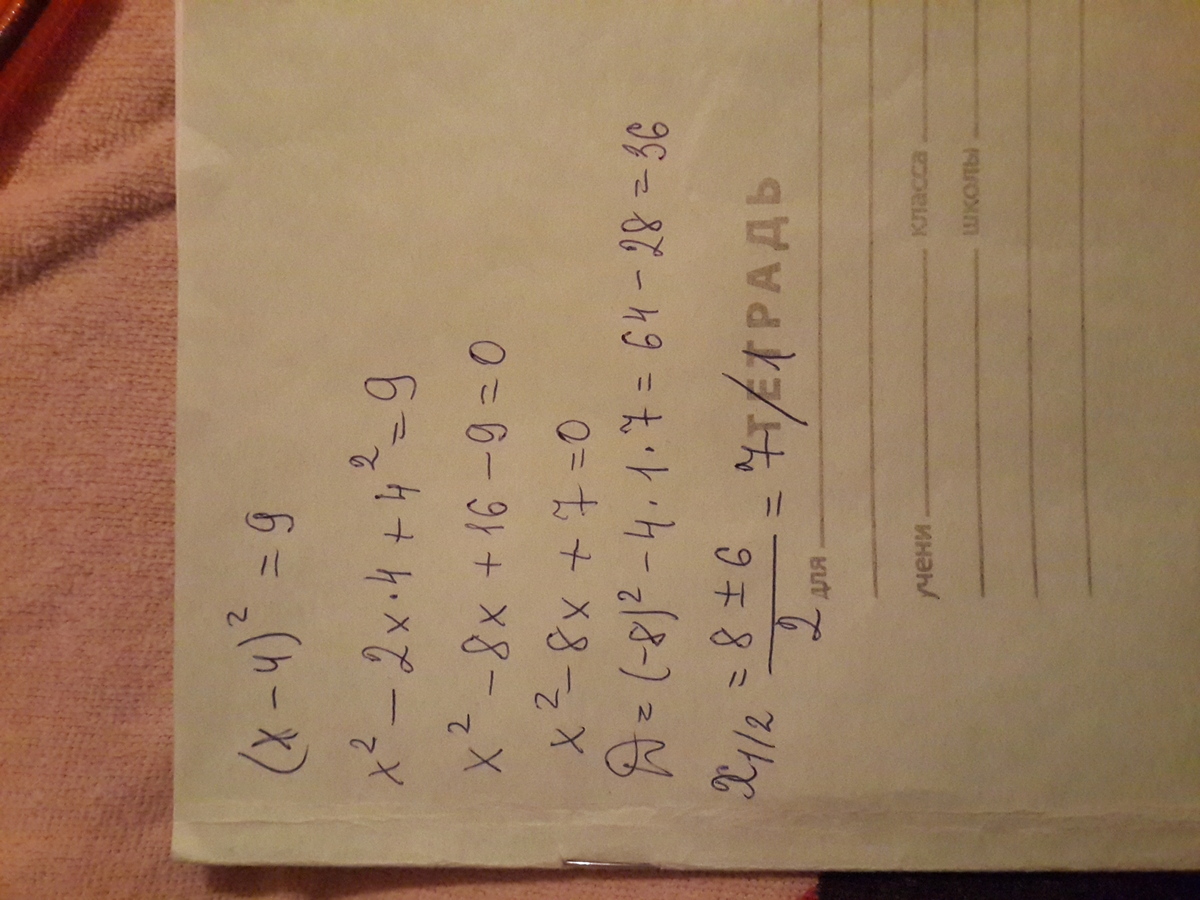 (x - 4)² = 9
x² - 2x · 4 + 4² = 9
x² - 8x + 16 - 9 = 0
x² - 8x + 7 = 0
D = (-8)² - 4 · 1 · 7 = 64 - 28 = 36
x1/2 = 8 ± 6 / 2 = 7 / 1
ТЕТРАДЬ
для
учени класса
школы